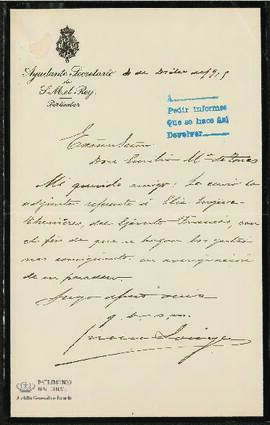 Ayudante Secretario
de
S. M. el Rey.
Particular
A
Pedir informes
Que se hace
Devolver
Excmo Señor
Don Emilio Mª de Torres
Mi querido amigo: Le envio la
adjunta, respecto á
del Ejército Francés, con
el fin de que se hagan las gestio-
nes consiguientes en averiguación
de su paradero.
Suyo afmo
q. b. s. m.
PATRIMONIO
NACIONAL
Archivo General de Palacio